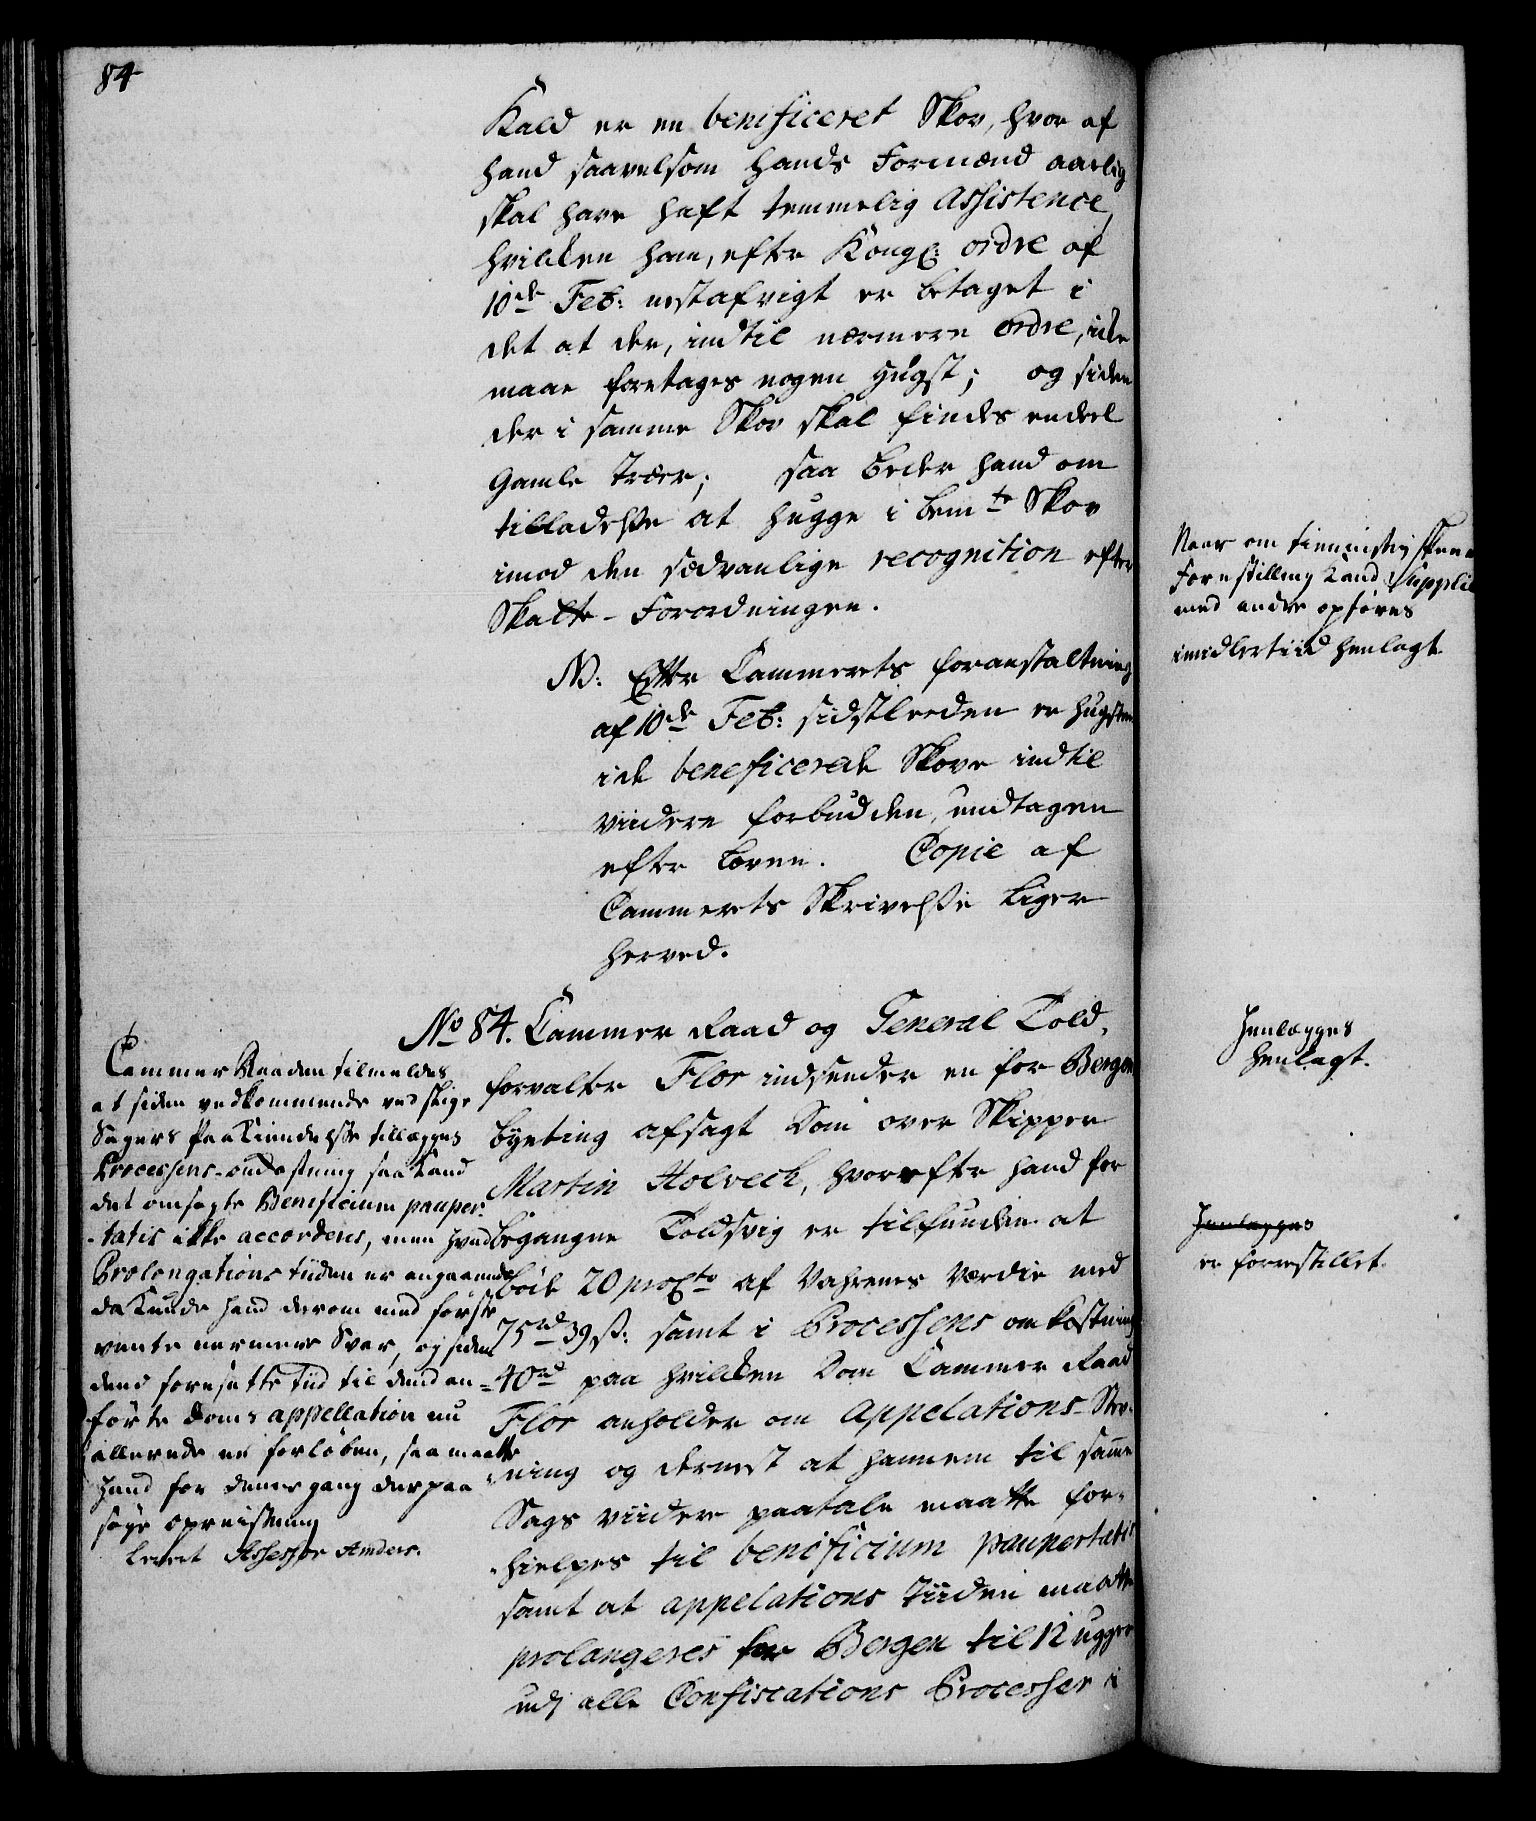 84
Kald er en beneficeret Skov, hvor af
hand saavelsom hands Formænd aarlig
skal have haft temmelig Assistence,
hvilken ham, efter Kongl: ordre af
10de Feb: nestafvigt er betaget i
det at der, indtil nærmere ordre, icke
maae foretages nogen Hugst; og siden
der i samme Skov skal findes endeel
gamle Træer; saa beder hand om
tilladelsse at hugge i bemte Skov
imod den sædvanlige recognition efter
Skatte-Forordningen.
N: Efter Cammerets foranstaltning
af 10de Feb: sidstleeden er hugsten
i de beneficerede Skove indtil
viidere forbudden, undtagen
efter Loven. Copie af
Cammerets Skrivelsse liger
herved.
No 84. Cammer Raad og General Told-
forvalter Flor indsender en for Bergen
byeting afsagt Dom over Skipper
Martin Holveck, hvorefter hand for
begangne Toldsvig er tilfunden at
bøde 20 procto af Vahrenes Værdie med
75rd 39 s: samt i Processens omkostning
40rd paa hvilken Dom Cammer Raad
Flor anholder om Appelations-Stev-
ning og dernest at hannem til samme
Sags viidere paatale maatte for-
hielpes til beneficium paupertatis
samt at appelations Tiiden maatte
prolangeres for Bergen til 12 ugger
udj alle Confiscations Processer i
Cammer Raaden tilmeldes
at siden vedkommende ved slige
Sagers Paakiendelsse tillægges
Processens-omkostning saa kand
det ansøgte Beneficium pauper-
tatis ikke accorderes, men hvad
Prolongations tiiden er angaaende
da kunde hand derom med første
vente nærmere Svar, og siden
dend foresatte tiid til dend an-
førte Doms appellation nu
allerede er forløben, saa maatte
hand for denne gang derpaa
søge opreisning
leveret Assessor Anders.
Naar om tiennislig
Forestilling kand Supplic
med andre opføres
imidlertiid henlagt.
Henlægges
henlagt.
Henlægges
er forestillet.